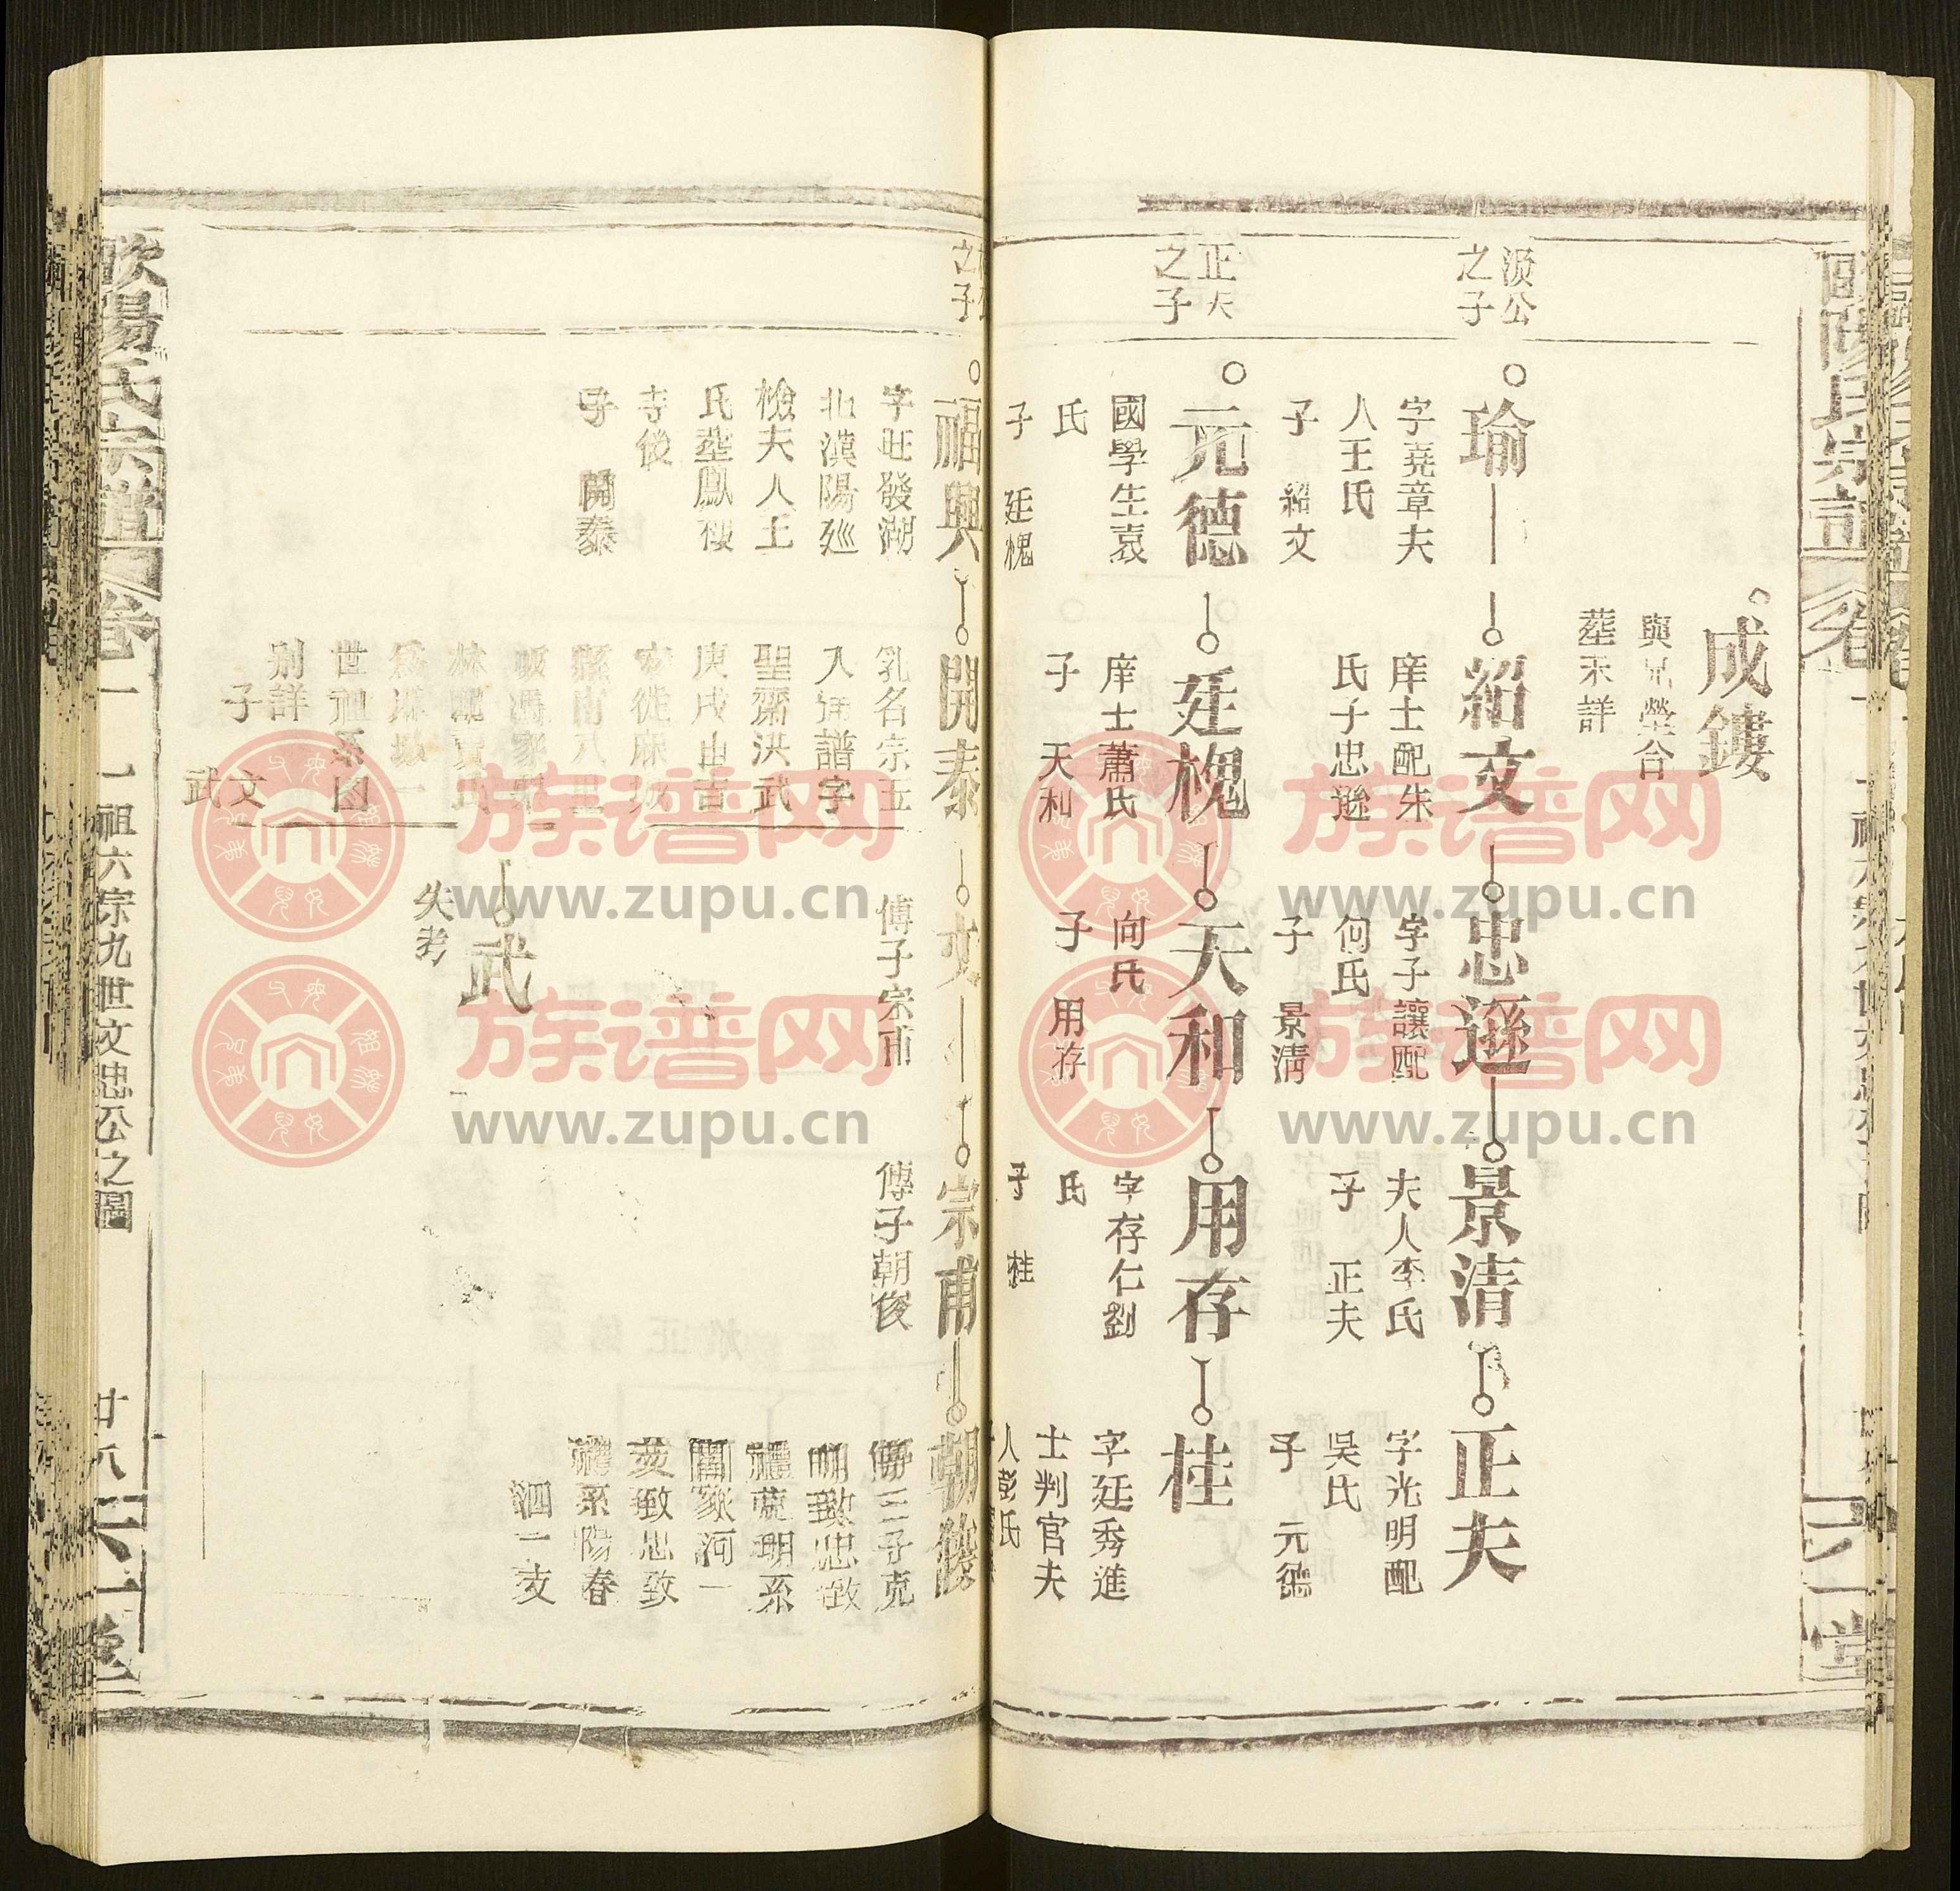 歐陽氏宗譜
卷一
六一堂
成鏤
與兄塋合
葬未詳
淚公
之子
瑜
字堯章夫
人王氏
子 紹文
紹文
庠士配朱
氏子忠遜
忠遜
字子讓配
何氏
子 景清
景清
夫人李氏
子 正夫
正夫
字光明配
吳氏
子 元德
正夫
之子
元德
國學生袁
氏
子 廷槐
廷槐
庠士蕭氏
子 天和
天和
向氏
子 用存
用存
字存仁劉
氏
子 桂
桂
字廷秀進
士判官夫
人彭氏
之子
福興
字旺發湖
北漢陽廵
檢夫人王
氏塟鳳棲
寺後
子 開泰
開泰
乳名宗五
入通譜字
聖齋洪武
庚戌由吉
安徙麻城
縣南八里
世祖系图
别詳
子 文
武
文
傳子宗甫
宗甫
傳子朝俊
武
失考
朝俊
傳三子克
明致忠致
禮克明系
閻家河一
支致忠致
禮系陽春
泗一支
歐陽氏宗譜
卷一
一祖六宗九世文忠公之圖
廿八
六一堂
族谱网
www.zupu.cn
族谱网
www.zupu.cn
族谱网
www.zupu.cn
族谱网
www.zupu.cn